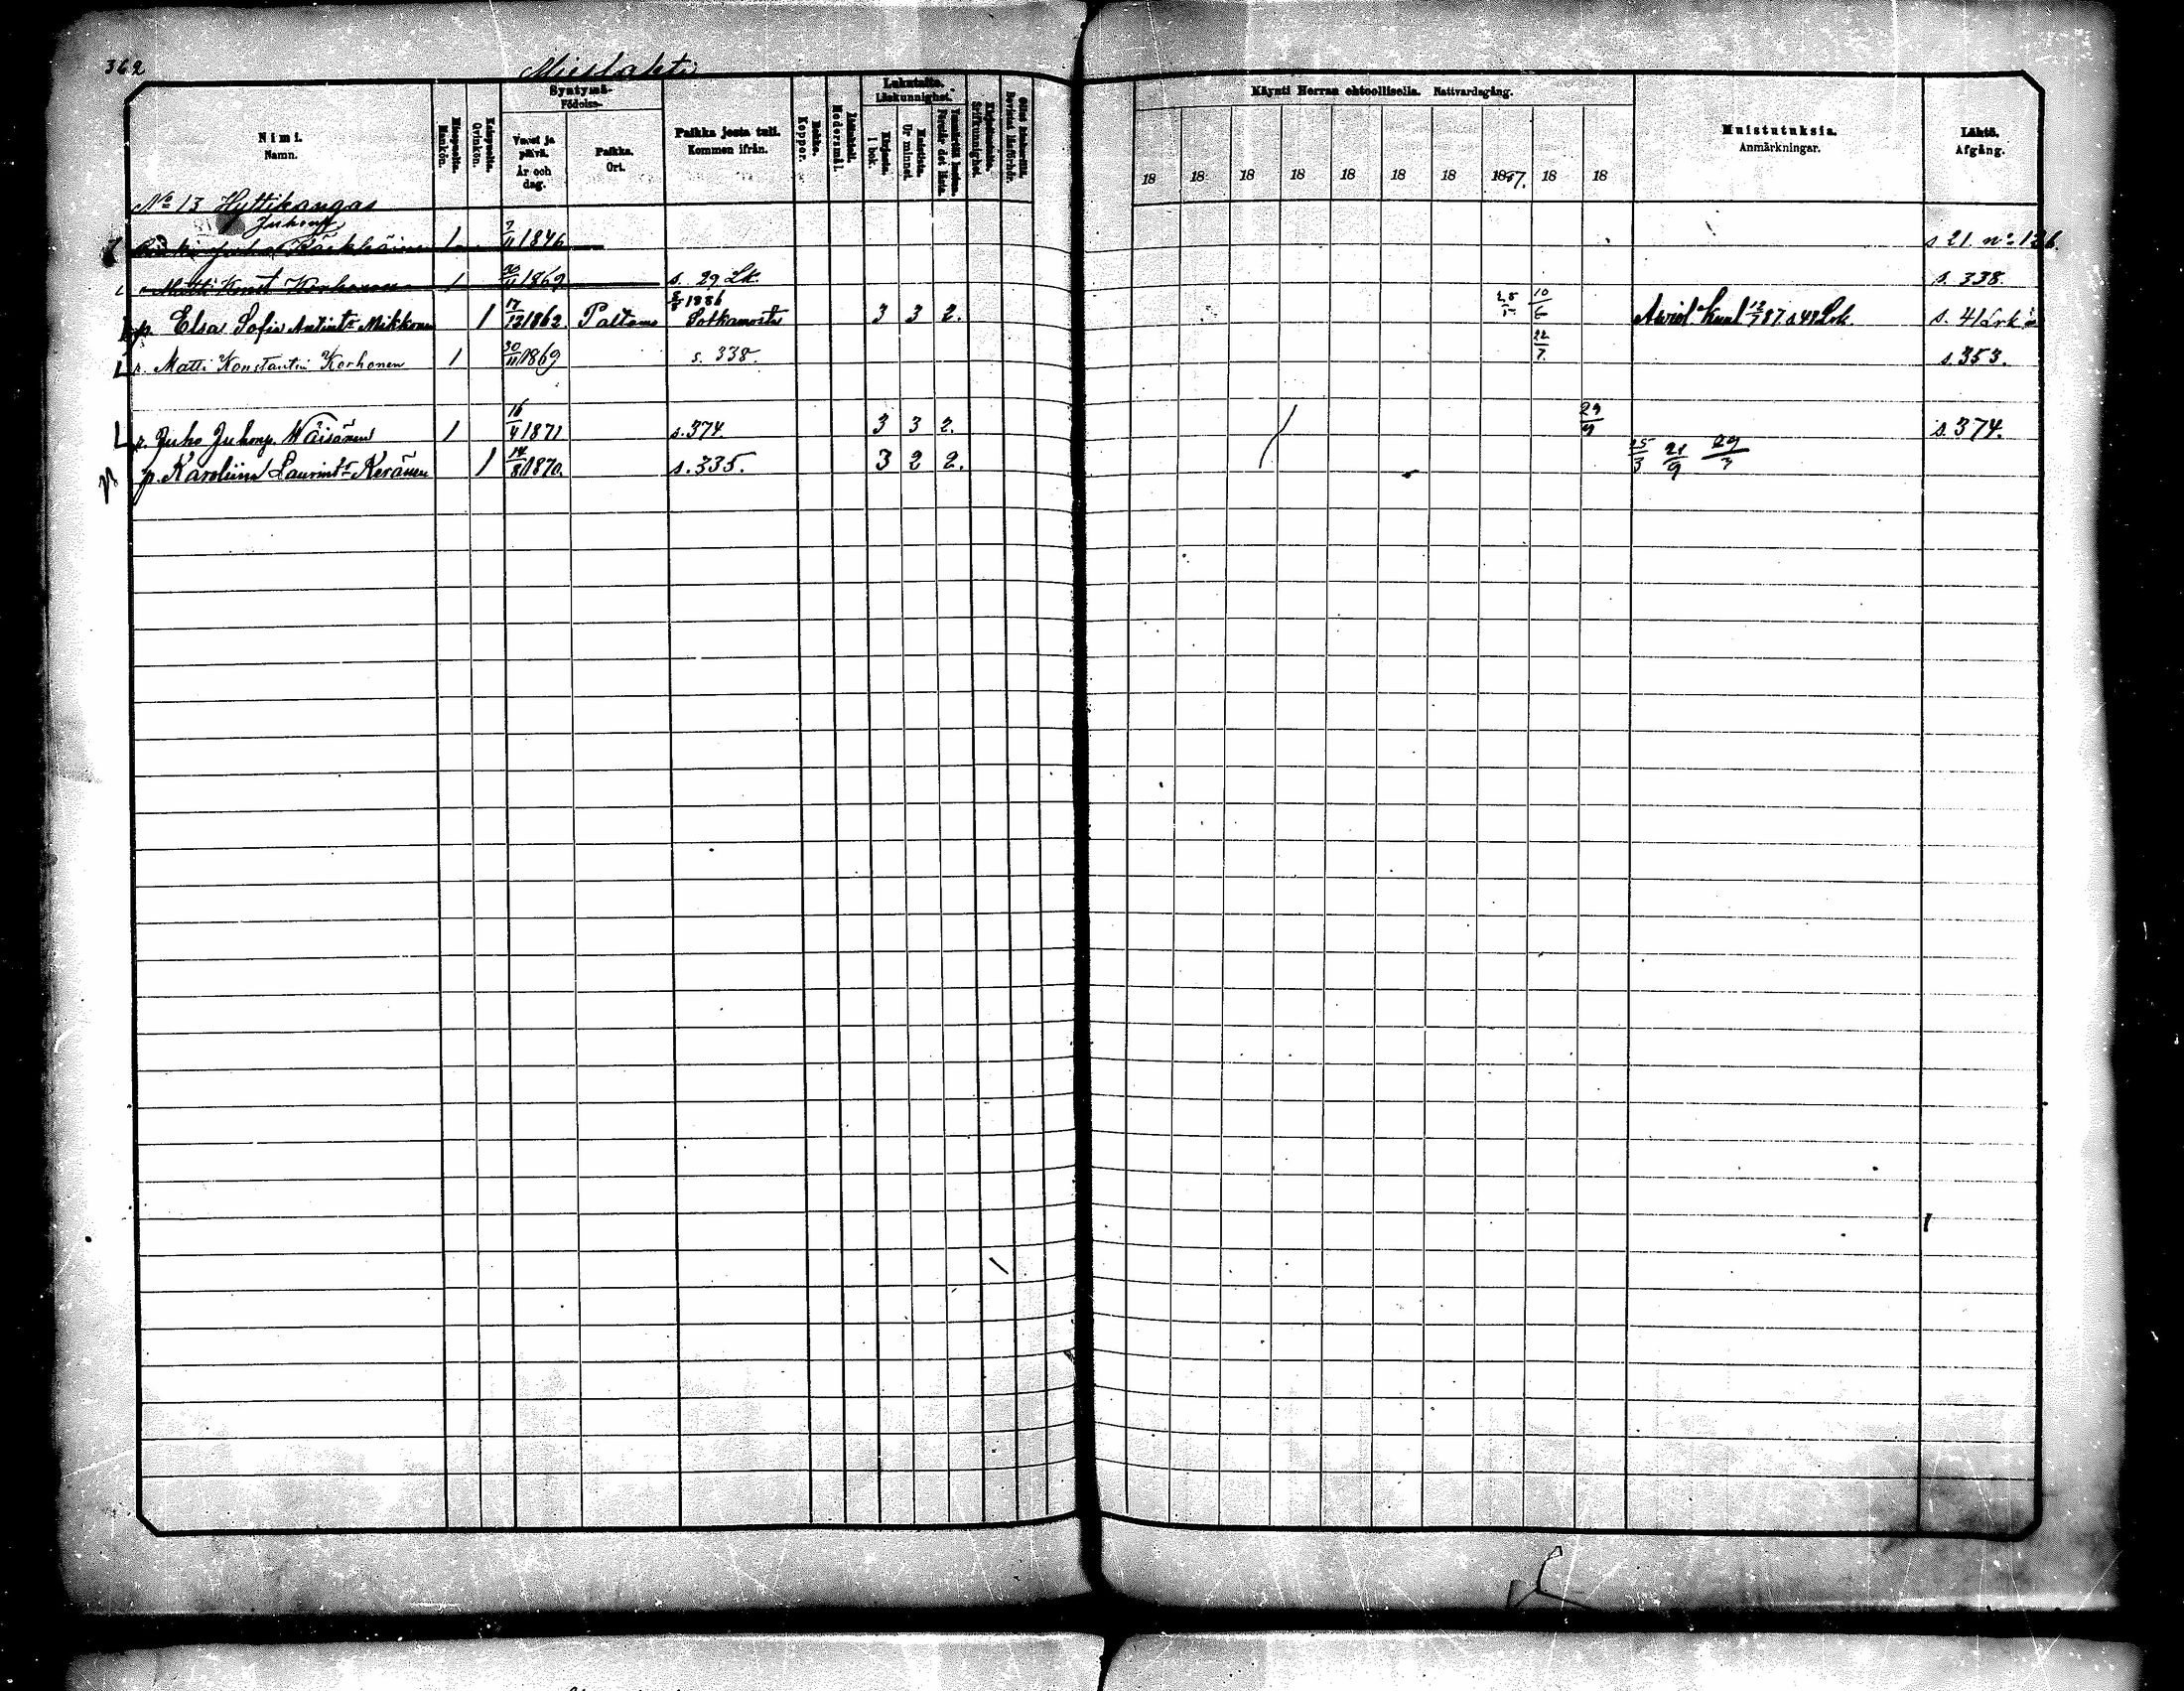 362
Mieslahti
Nimi. Namn.
Miespuolta. Mankön.
Vaimopuolta. Qvinkön.
Syntymä- Födelse-
Vuosi ja päivä. År och dag.
Paikka. Ort.
Paikka josta tuli. Kommen ifrån.
Rokko. Koppor.
Lukutaito. Läskunnighet.
Kirjasta. I bok.
Muistista. Ur minnet.
Käynti Herran ehtoollisella. Nattvardsgång.
18 18 18 18 18 18 18 1887. 18 18
Muistutuksia. Anmärkningar.
Lähtö. Afgång.
No 13 Hyttikangas
Juhonp.
1 1846 s 21 no 126.
Matti Konst Korhonen 1 30/11 1869 s. 29 Lk. s. 338.
p. Elsa Sofia Antint:r Mikkonen 1 17/12 1862. Paltamo 1886 Sotkamosta 3 3 2. 10/6 Aviol. kuul 87 s 49 Lrk. s. 41 Lrk
r. Matti Konstantin Korhonen 1 30/11 1869 s. 338. 22/7. s. 353.
r. Juho Juhonp. Wäisänen 1 16/4 1871 s. 374. 3 3 2. 29/9 s. 374.
p. Karoliina Laurint:r Keränen 1 14/8 1870. s. 335. 3 2 2. 25/3 21/9 29/3